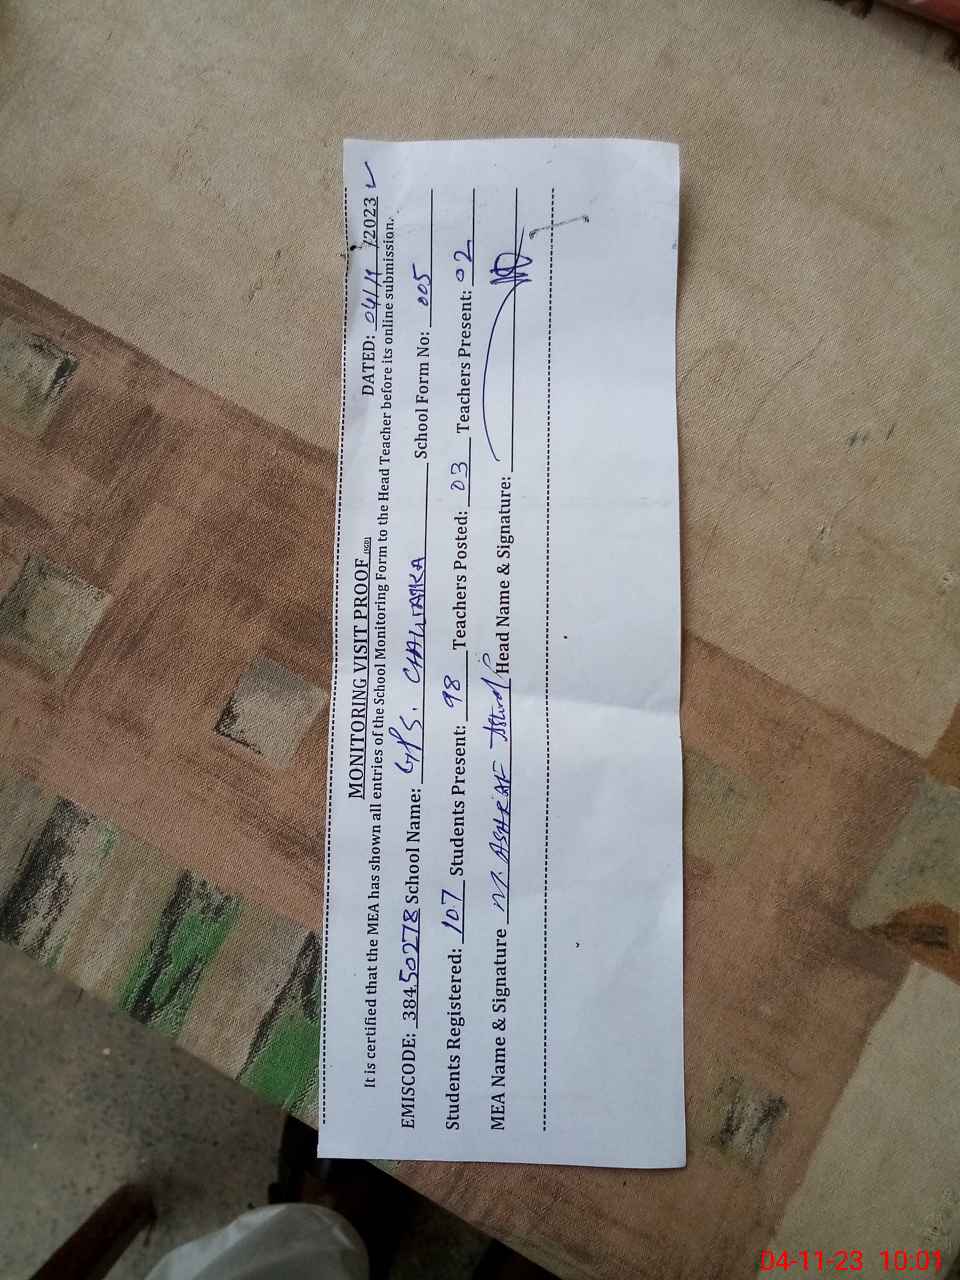 MONITORING VISIT PROOF (SGD) DATED: 04/11/2023
It is certified that the MEA has shown all entries of the School Monitoring Form to the Head Teacher before its online submission.
EMISCODE: 38450278 School Name: GPS. CHAWAKA School Form No: 005
Students Registered: 107 Students Present: 98 Teachers Posted: 03 Teachers Present: 02
MEA Name & Signature M. ASHRAF Head Name & Signature:
04-11-23 10:01